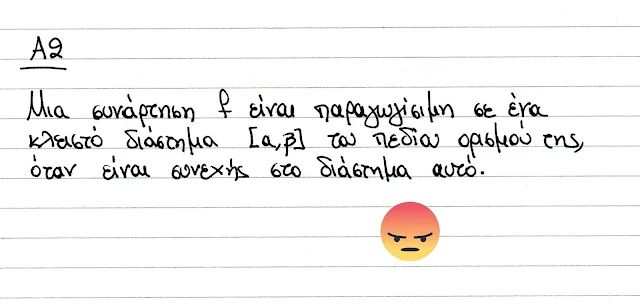 Α2
Μια συνάρτηση f είναι παραγωγίσιμη σε ένα
κλειστό διάστημα [α,β] του πεδίου ορισμού της,
όταν είναι συνεχής στο διάστημα αυτό.